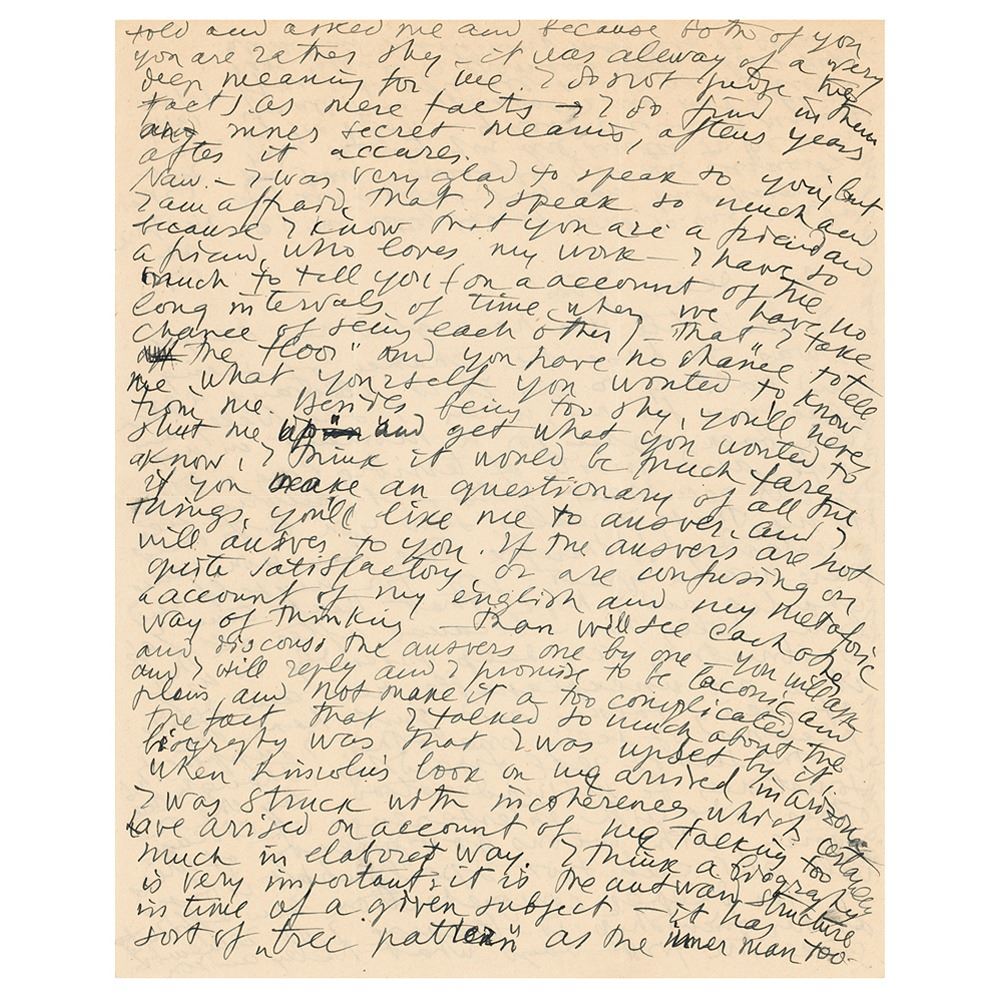 told and asked me and because both of you
you are rather shy – it was alleway of a very
deep meaning for me. I do not judge this
facts as mere facts → I do find in them
and mines secret meanis, afters years
after it accures.
Naw. – I was very glad to speak to you, but
I am affraid, that I speak so much and
because I know that you are a friend and
a friend, who loves my work – I have so
much to tell you (on a account of the
long intervals of time when we have no
chance of seing each other) – "that" I take
the floor" and you have no shance to tell
me what yourself you wonted to know
from me. Besides being too shy, you'll never
shut me up" and get what you wonted to
aknow. I think it would be much
if you make an questionary of all the
things, you'll like me to answer, and I
will answer to you. If the answers are not
quite satisfactory, or are confusing on
a account of my english and my metaforic
way of thinking – than will see each other
and discouss the answers one by one – you will ask
and I will reply and I promise to be laconic and
plain and not make it a too complicated
the fact that I talked so much about the
biography was that I was upset by it.
When book on me arrived in Arizona
I was struck with incoherences which certainly
have arised on account of me talking too
much in elaboret way. I think a biography
is very important; it is the structure
in time of a given subject – it has
sort of „tree pattern" as the inner man too-